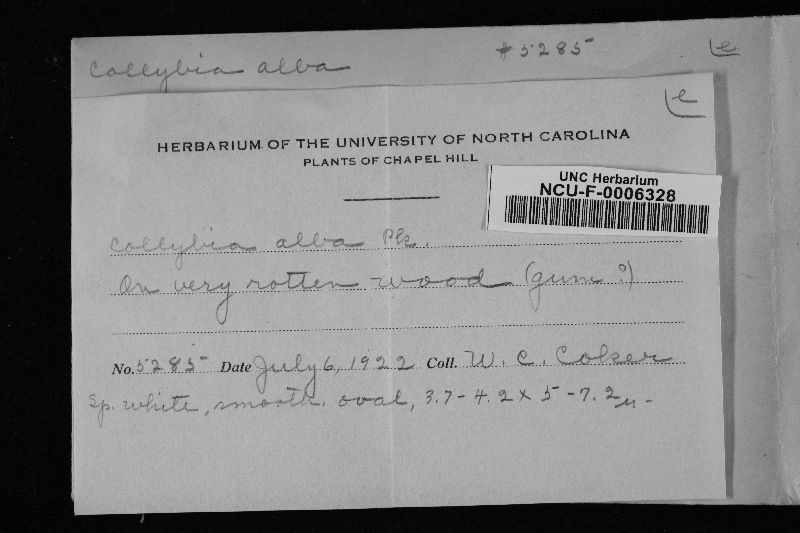 Collybia alba #5285 e
e
HERBARIUM OF THE UNIVERSITY OF NORTH CAROLINA
PLANTS OF CHAPEL HILL
UNC Herbarium
NCU-F-0006328
Collybia alba Pk.
On very rotten wood (gum?)
No. 5285 Date July 6, 1922 Coll. W. C. Coker
Sp. white, smooth. oval, 3.7-4.2 x 5-7.2µ-